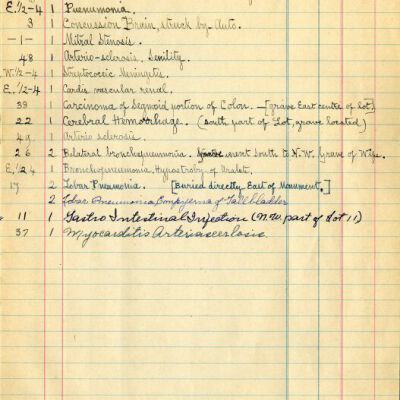 E. 1/2-4 1 Pneumonia.
3 1 Concussion Brain, struck by Auto.
-1- 1 Mitral Stenosis.
48 1 Arterio-sclerosis, Senility.
W. 1/2-4 1 Streptococic Meningitis.
E. 1/2-4 1 Cardio vascular renal.
39 1 Carcinoma of Segmoid portion of Colon. - [grave East centre of lot]
22 1 Cerebral Hemorrhage. (south part of Lot, grave located)
49 1 Arterio sclerosis.
26 2 Bilateral bronchopneumonia. next south to N.W. Grave of Wife.
E. 1/2 4 1 Bronchopneumonia,
17 2 Lobar Pneamonia. [Buried directly East of Monument.]
2 Lobar Pneumonia Empyema of Gallbladder
11 1 Gastro Intestinal Injection (N.W. part of Lot 11)
37 1 Myocarditis